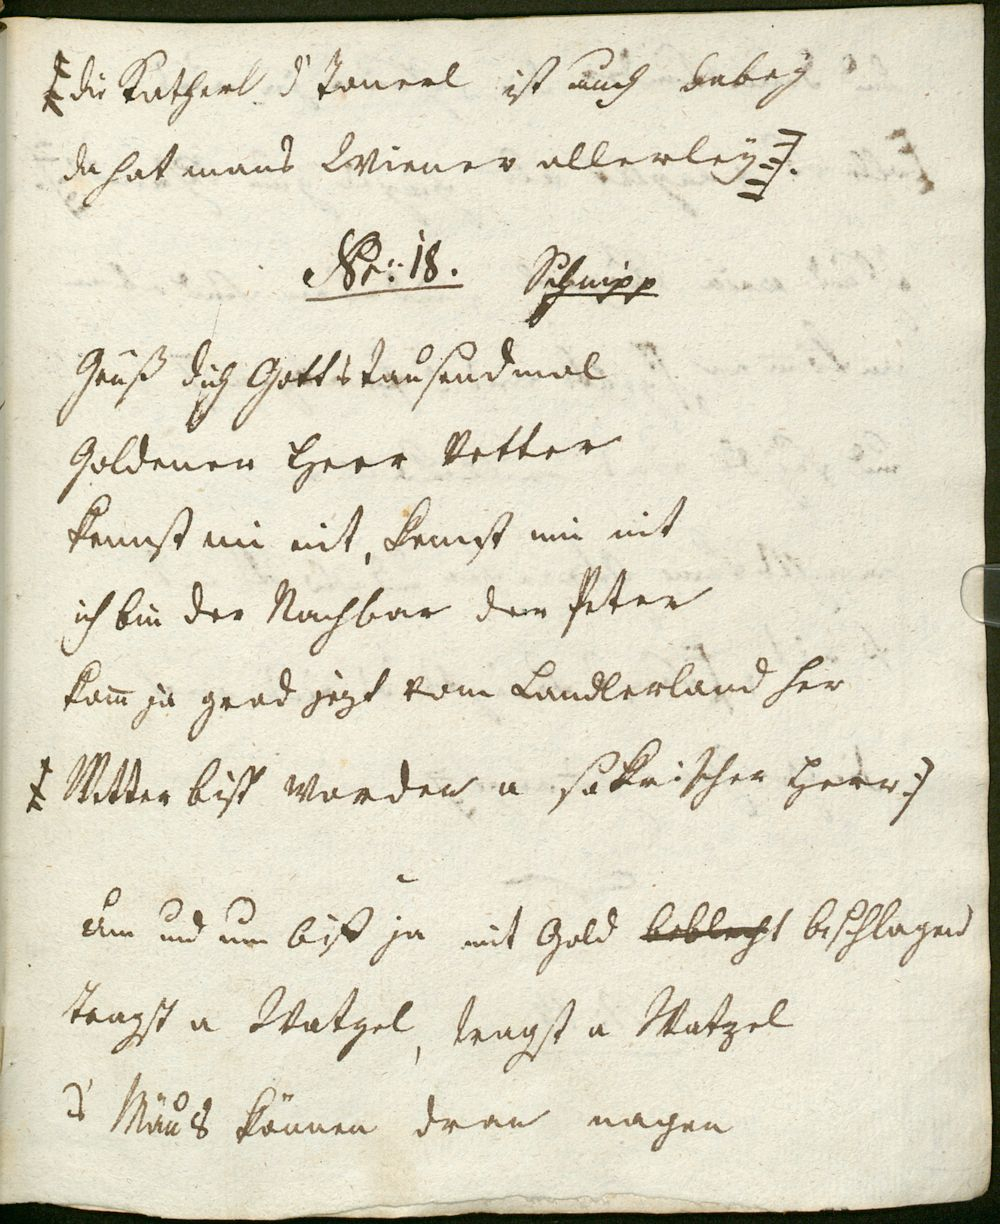 die Katherl d' Bonerl ist auch dabey
da hat mans Wiener allerley :/:
No: 18. Schnipp
Grüß dich Gott'stausendmal
Goldener Herr Vetter
kennst mi nit, kennst mi nit
ich bin der Nachbar der Peter
kom̅ ja grad jezt vom Landlerland her
Vetter bist worden a sakrischer Herr :/
um und um bist ja mit Gold beblecht bschlagen
tragst a Watzel, tragst a Watzel
s' Mäuß können dran nagen